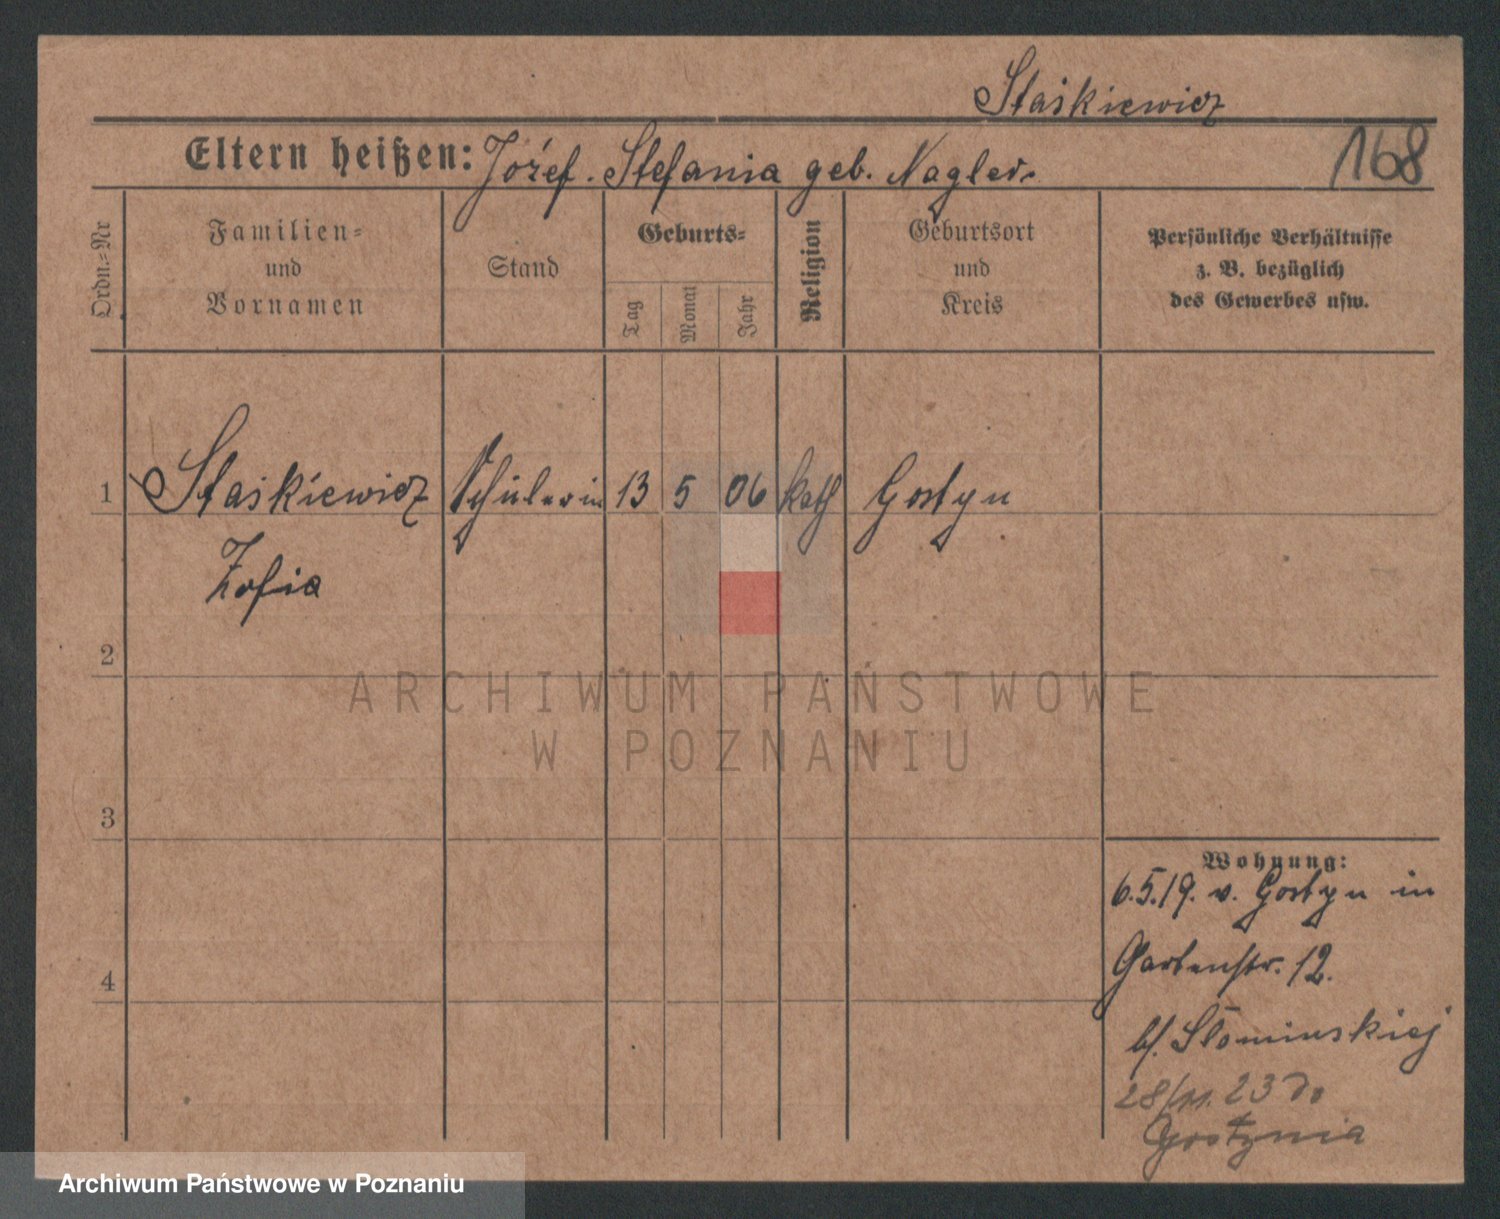 Staśkiewicz
Eltern heißen: Józef. Stefania geb. Nagler.
168
Ordn.=Nr
Familien=
und
Vornamen
Stand
Geburts=
Tag
Monat
Jahr
Religion
Geburtsort
und
Kreis
Persönliche Verhältnisse
z. B. bezüglich
des Gewerbes usw.
1 Staśkiewicz Schülerin 13 5 06 kath Gostyn
Zofia
2
3
4
Wohnung:
6.5.19. v. Gostyn in
Gartenstr. 12.
b/. Słominskiej
28/11. 23 do
Gostynia
ARCHIWUM PAŃSTWOWE
W POZNANIU
Archiwum Państwowe w Poznaniu